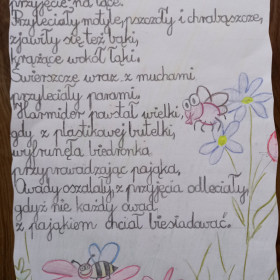 przyjęcie na łące.
Przyleciały motyle, pszczoły i chrabąszcze,
zjawiły się też bąki,
krążące wokół łąki.
Świerszcze wraz z muchami
przyleciały parami.
Harmider powstał wielki,
gdy z plastikowej butelki,
wyfrunęła biedronka
przyprowadzając pająka,
Owady oszalały, z przyjęcia odleciały,
gdyż nie każdy owad
z pająkiem chciał biesiadować.